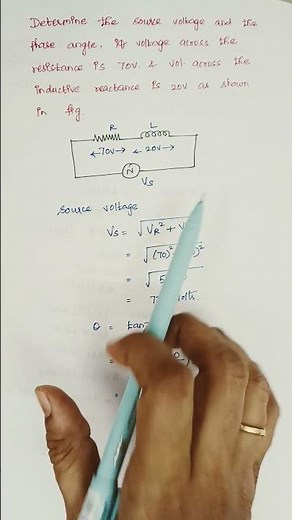 Determine the source voltage and the
phase angle, if voltage across the
resistance is 70V & vol. across the
inductive reactance is 20V as shown
in fig.
R L
←70V→ ←20V→
N
Vs
Source voltage
Vs = √VR² + V
= √(70)²
= √5
= 7 volts.
θ = tan
=
=